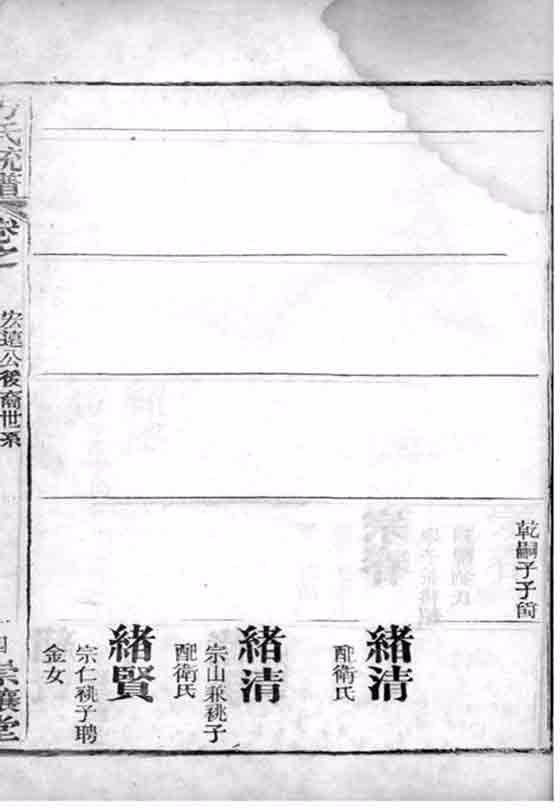 乾嗣子子茼
緒清
配衛氏
緒清
宗山兼祧子
配衛氏
緒賢
宗仁祧子聘
金女
方氏統譜
卷之
宏達公後裔世系
十四
崇讓堂